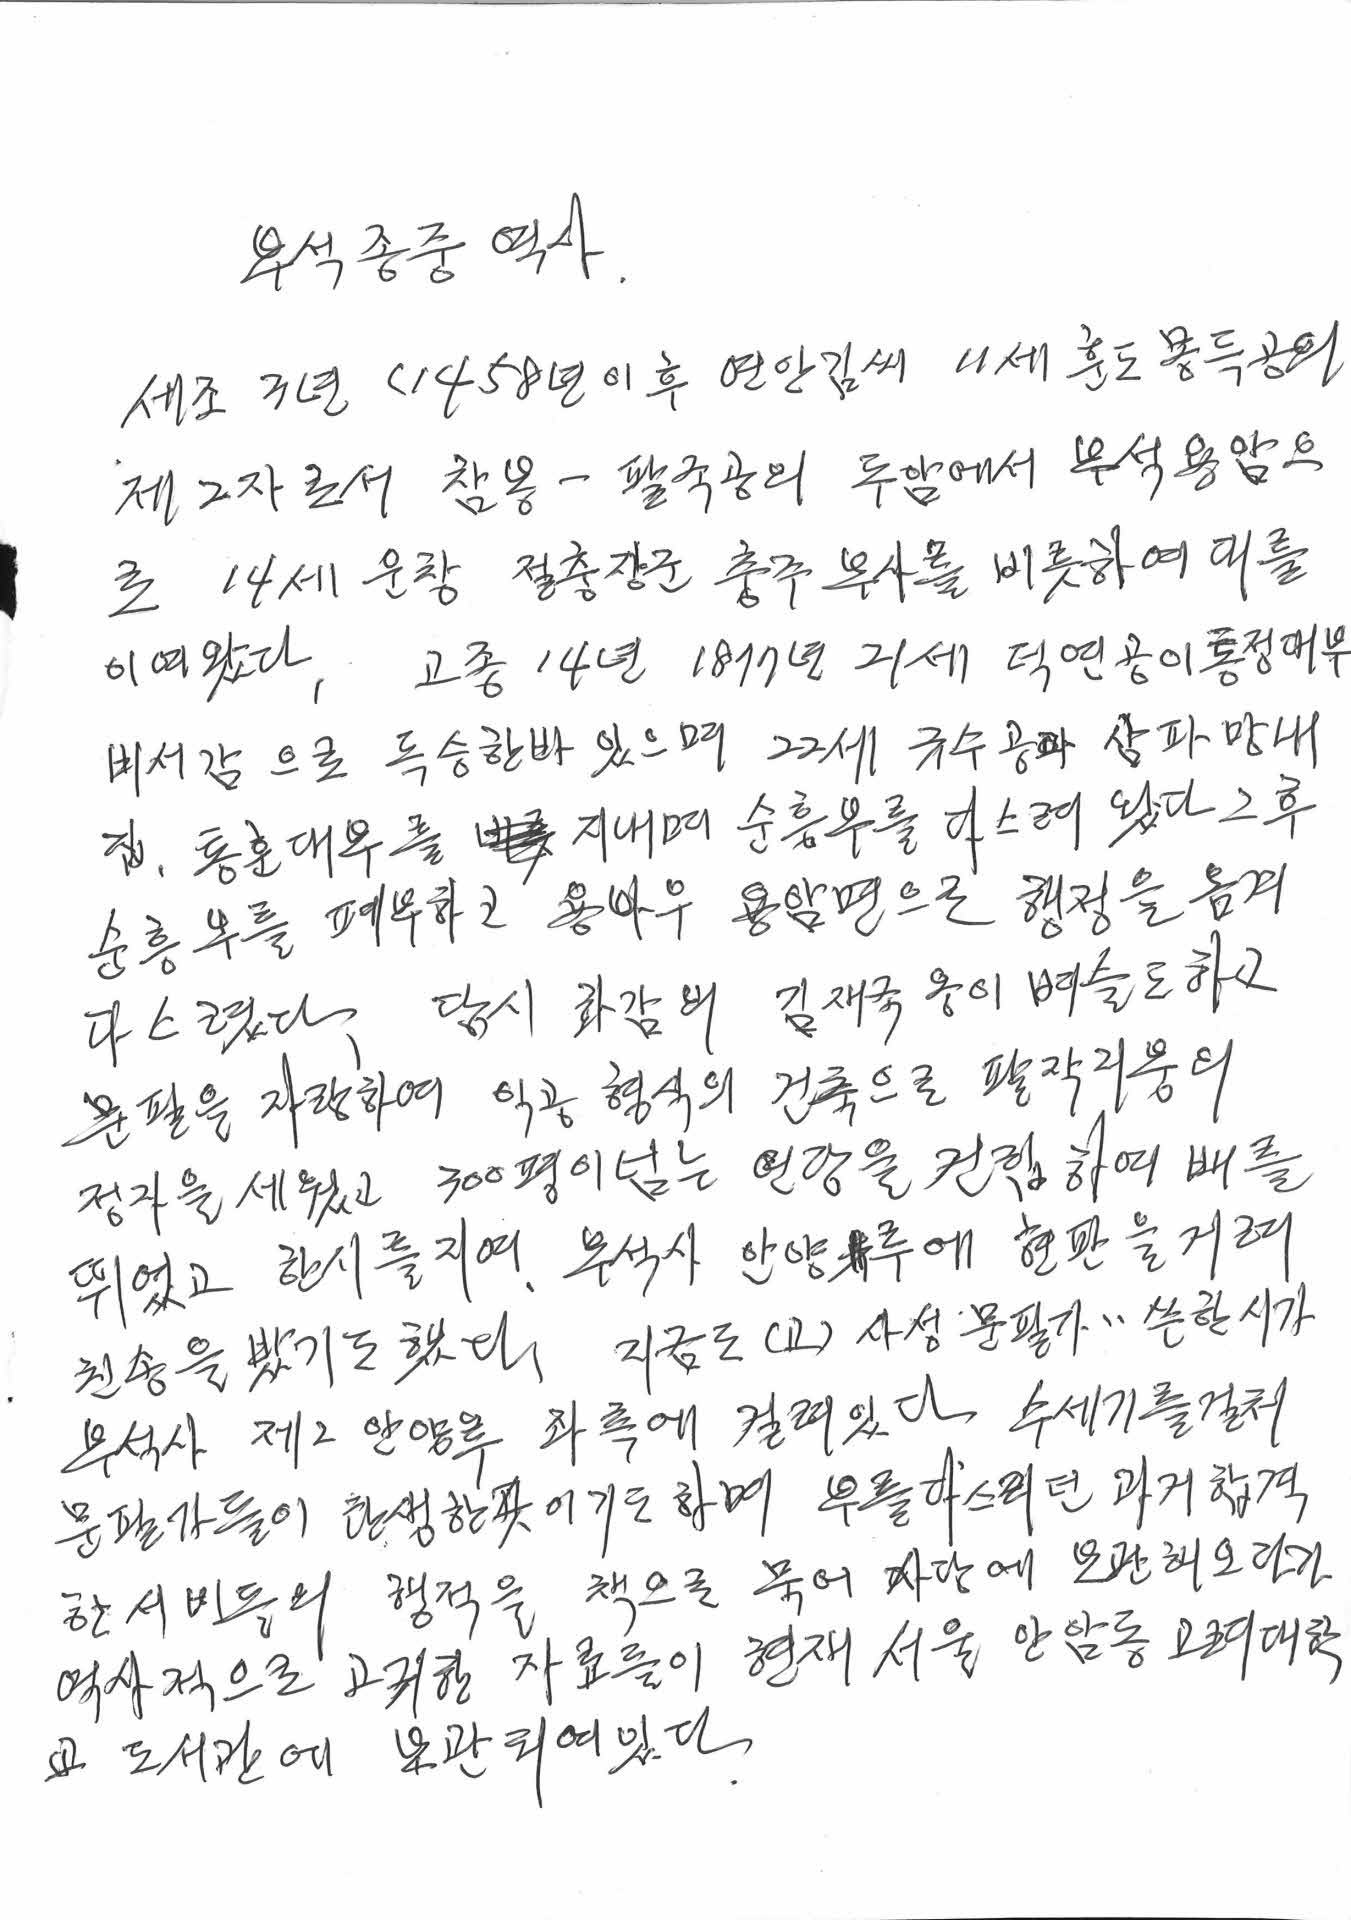 부석종중 역사.
세조 3년 <1458년이후 연안김씨 11세 훈도 몽득공의
제2자로서 참봉 - 팔국공의 두암에서 부석용암으
로 14세 운창 절충장군 충주 부사를 비롯하여 대를
이여왔다, 고종 14년 1877년 21세 덕연공이 통정대부
비서감 으로 득승한바 있으며 22세 규수공파 삼파 망내
집. 통훈대부를 지내며 순흥부를 다스려 왔다 그후
순흥부를 폐부하고 용바우 용암면으로 행정을 옴겨
다스렸다, 당시 화감의 김재국옹이 벼슬도하고
문필을 자랑하여 익공 형식의 건축으로 팔작지붕의
정자을 세웠고 300평이넘는 연당을 건립하여 배를
뛰였고 한시를지여. 부석사 안양루에 현판을거려
칭송을 밨기도했다, 지금도 (고) 사성 문필가'' 쓴한시가
부석사 제2 안양루 좌측에 걸려있다 수세기를걸처
문필가들이 탄생한곳이기도 하며 부를다스리던 과거합격
한 서비들의 행적을 책으로 묶어 사당에 보관해오다가
역사적으로 고귀한 자료들이 현재 서울 안암동 고려대학
교 도서관에 보관되여있다.